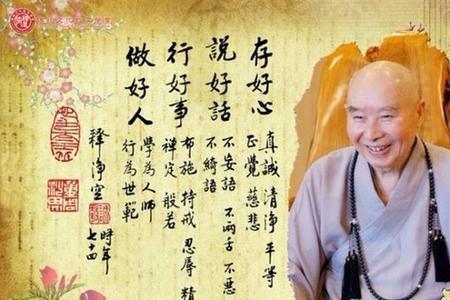 存好心
真誠 清淨 平等
正覺 慈悲
說好話
不妄語 不兩舌 不惡
不綺語
行好事
布施 持戒 忍辱 精
禪定 般若
做好人
學為人師
行為世範
釋淨空
時年
七十四